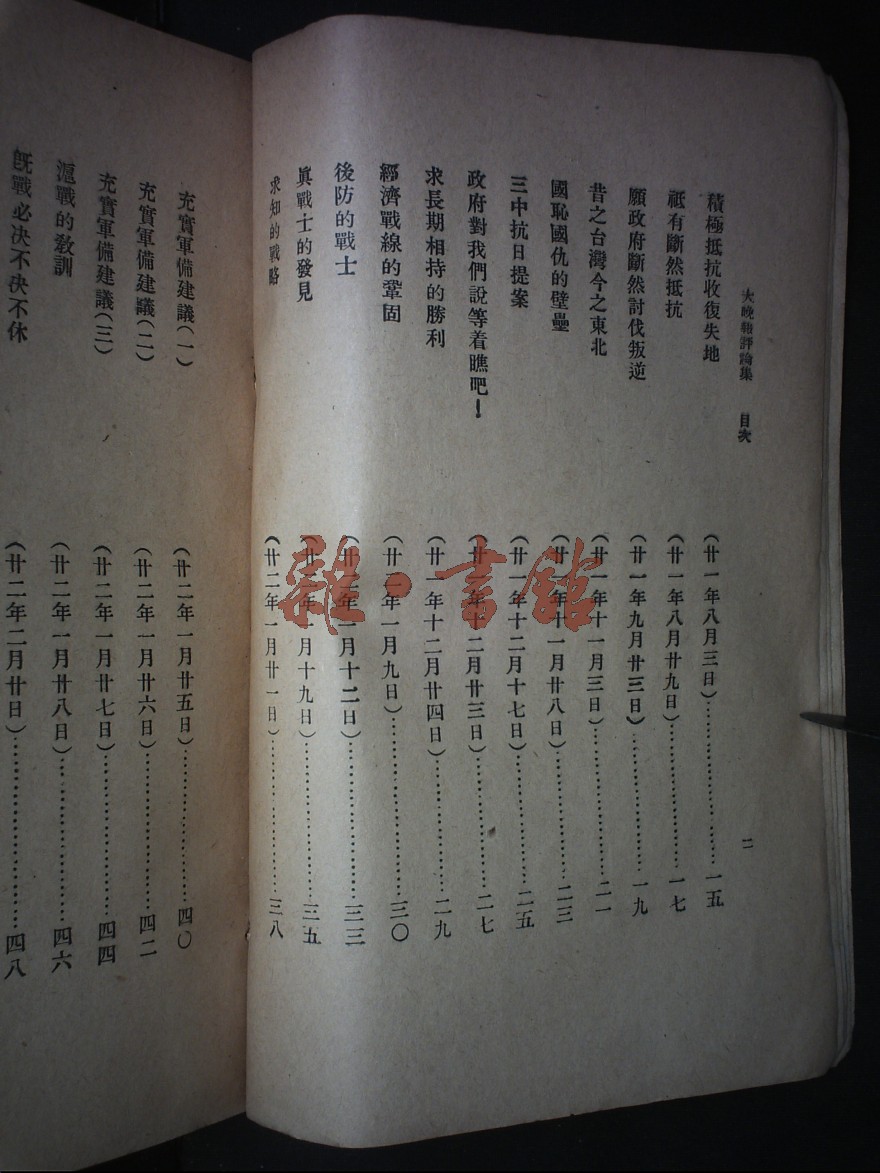 大晚報評論集　目次
二
積極抵抗收復失地（廿一年八月三日）…………一五
祗有斷然抵抗（廿一年八月廿九日）…………一七
願政府斷然討伐叛逆（廿一年九月廿三日）…………一九
昔之台灣今之東北（廿一年十一月三日）…………二一
國恥國仇的壁壘（廿一年十一月廿八日）…………二三
三中抗日提案（廿一年十二月十七日）…………二五
政府對我們說等着瞧吧！（廿一年十二月廿三日）…………二七
求長期相持的勝利（廿一年十二月廿四日）…………二九
經濟戰線的鞏固（廿一年一月九日）…………三〇
後防的戰士（廿二年一月十二日）…………三三
眞戰士的發見（廿二年一月十九日）…………三五
求知的戰略（廿二年一月廿一日）…………三八
充實軍備建議（一）（廿二年一月廿五日）…………四〇
充實軍備建議（二）（廿二年一月廿六日）…………四二
充實軍備建議（三）（廿二年一月廿七日）…………四四
滬戰的教訓（廿二年一月廿八日）…………四六
旣戰必決不決不休（廿二年二月廿日）…………四八
雜·書館